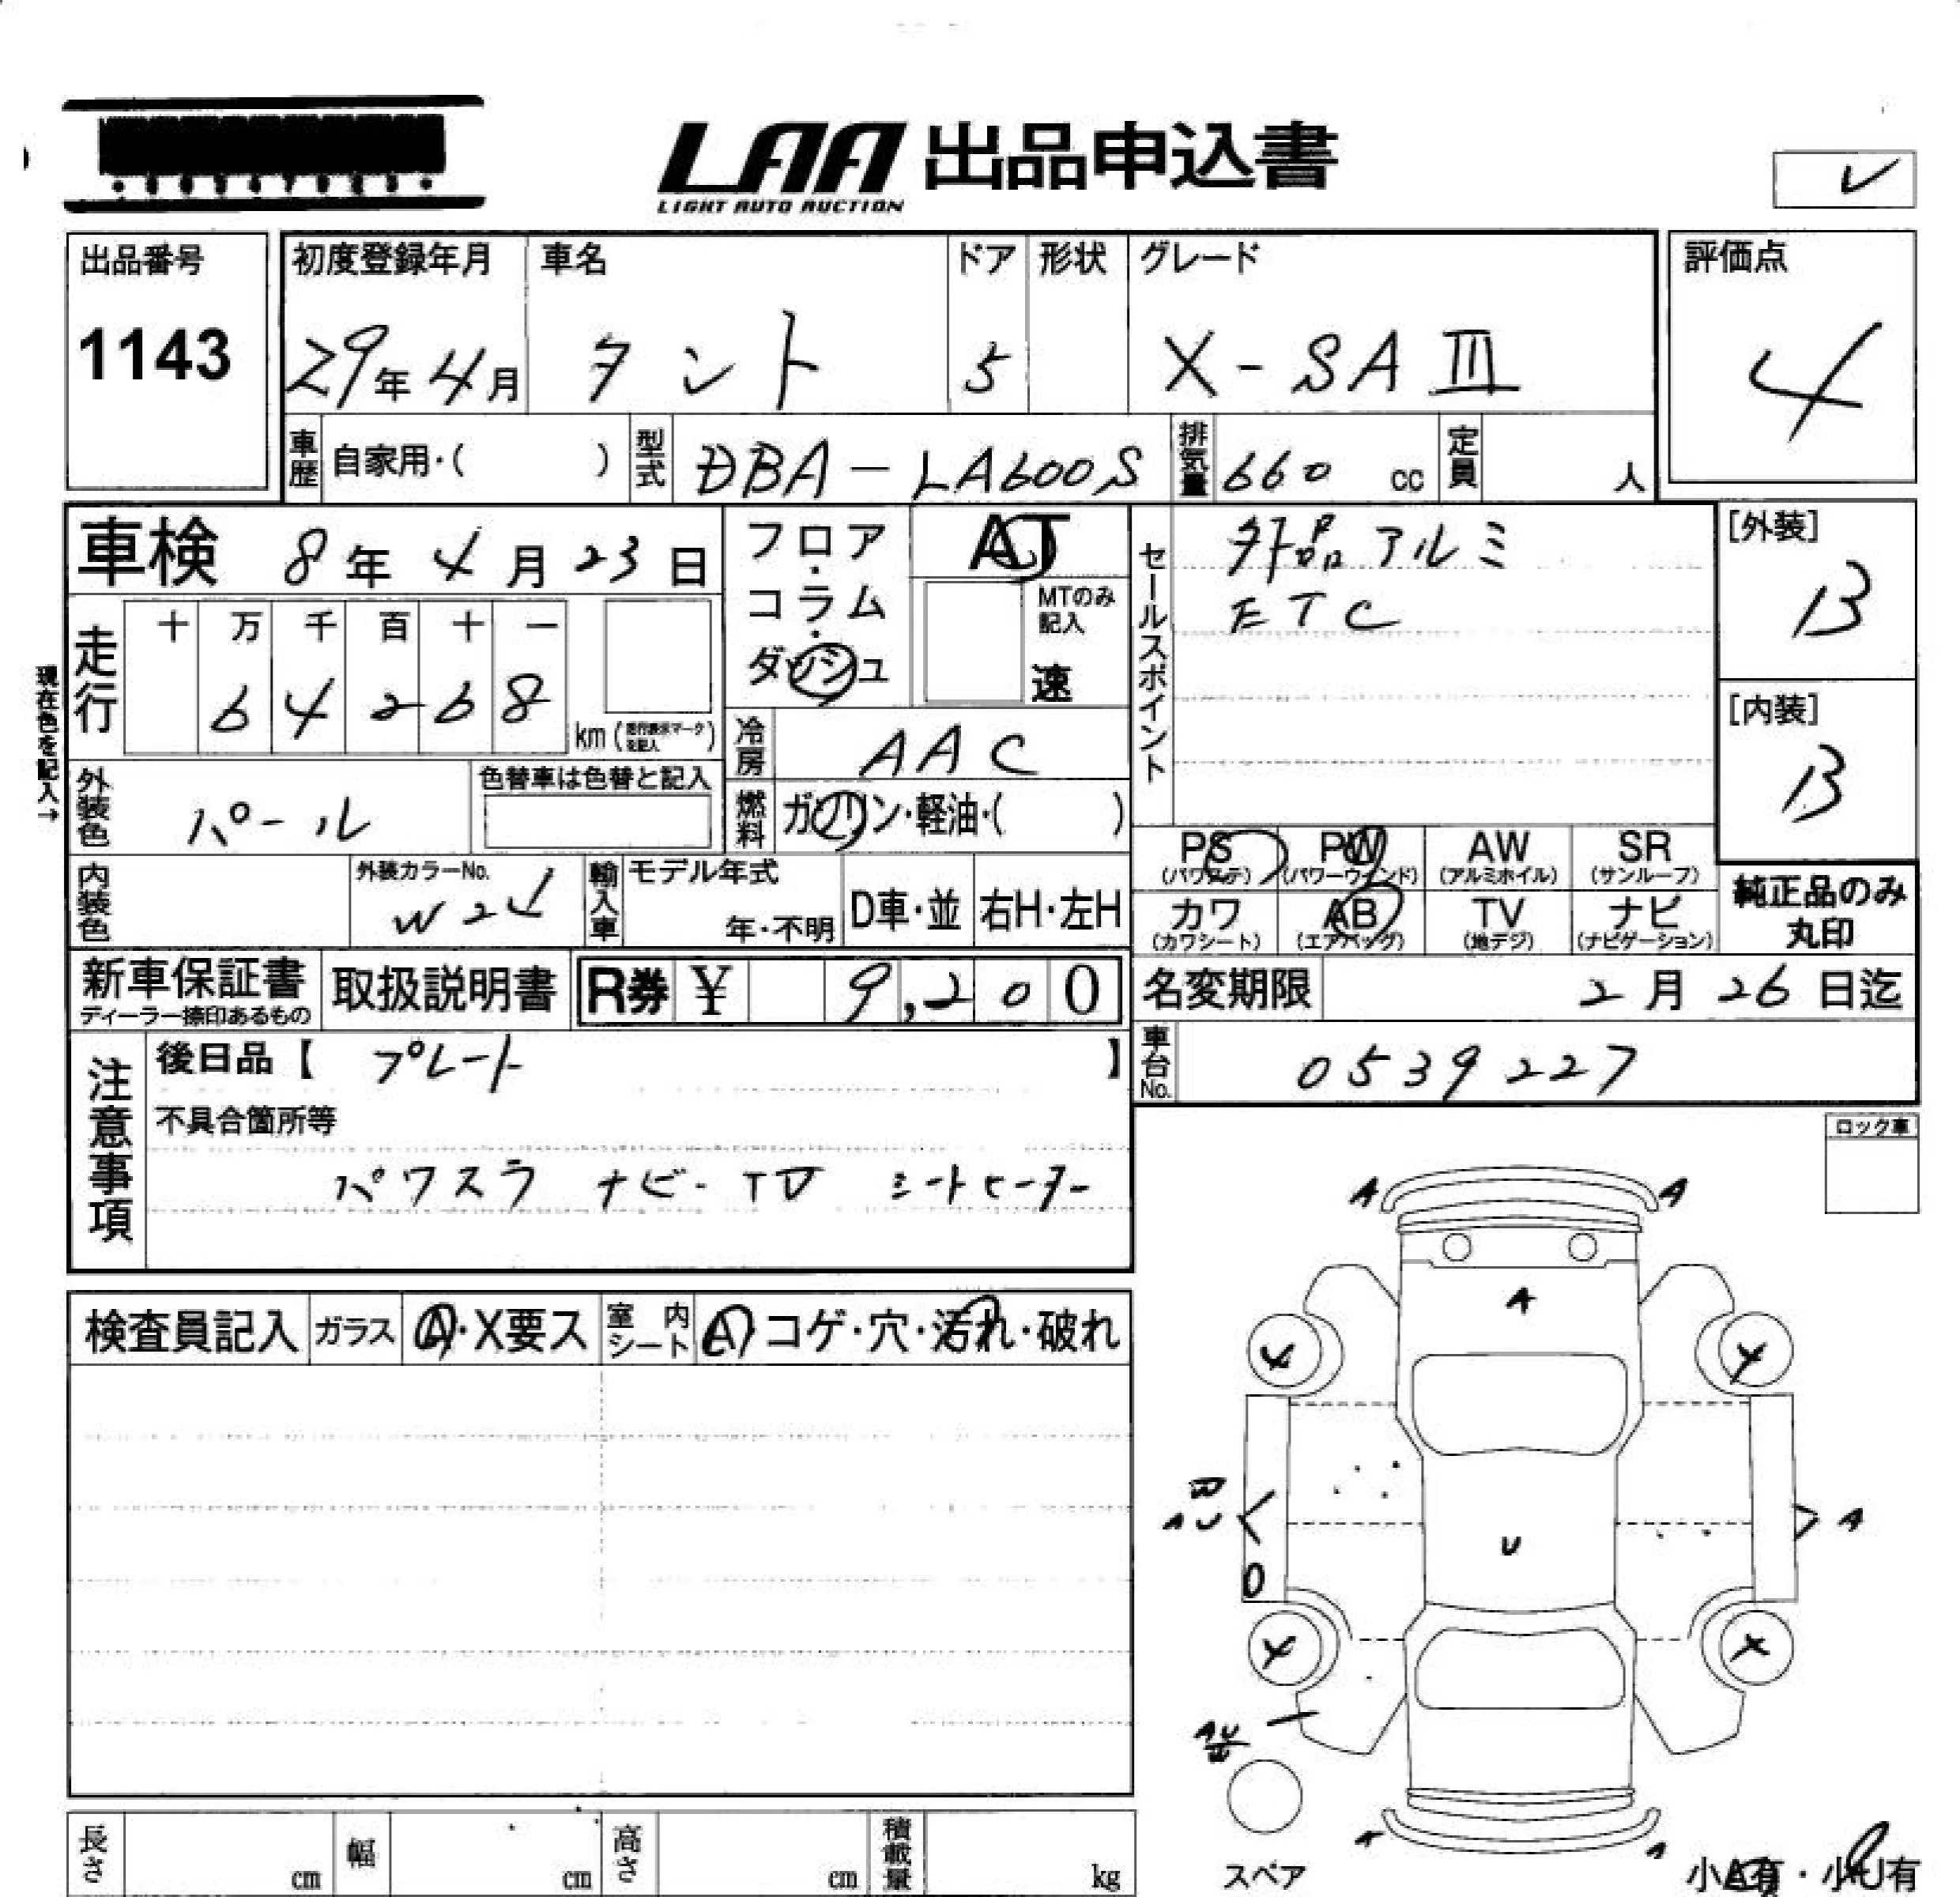 LAA 出品申込書
LIGHT AUTO AUCTION
レ
出品番号
1143
初度登録年月
29年 4月
車名
タント
ドア
5
形状
グレード
X-SA III
評価点
4
車歴 自家用・( )
型式 DBA-LA600S
排気量 660 cc
定員 人
車検 8年 4月 23日
フロア・コラム・ダッシュ
AT
MTのみ記入
速
セールスポイント
外品アルミ
ETC
[外装]
B
[内装]
B
現在色を記入→
走行
十 万 千 百 十 一
6 4 2 6 8
km (走行表示マークを記入)
冷房 AAC
外装色 パール
色替車は色替と記入
燃料 ガソリン・軽油・( )
PS (パワステ)
PW (パワーウインド)
AW (アルミホイル)
SR (サンルーフ)
カワ (カワシート)
AB (エアバッグ)
TV (地デジ)
ナビ (ナビゲーション)
純正品のみ
丸印
内装色
外装カラーNo.
W24
輸入車 モデル年式
年・不明
D車・並
右H・左H
新車保証書
ディーラー捺印あるもの
取扱説明書
R券 ¥ 9,200
名変期限 2月 26日迄
車台No. 0539227
注意事項
後日品【 プレート 】
不具合箇所等
パワスラ ナビ-TV シートヒーター
ロック車
検査員記入 ガラス A・X要ス 室内シート A コゲ・穴・汚れ・破れ
A A
A
4 4
W
AU
A
U
4 4
AU
W
A
スペア
小A有・小U有
長さ cm 幅 cm 高さ cm 積載量 kg